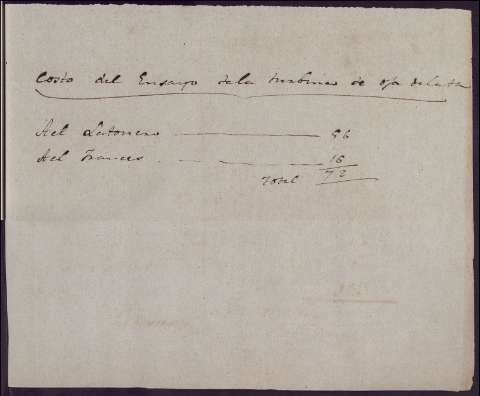 Costo del Ensayo de la turbina de oja de lata
Al Latonero 56
Al Frances 16
Total 72